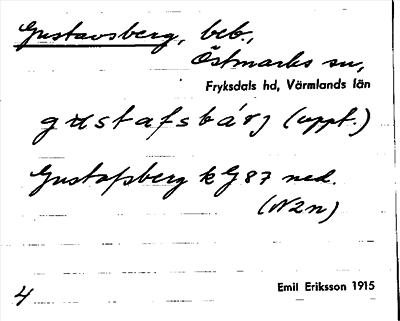 Gustavsberg, beb.,
Östmarks sn,
Fryksdals hd, Värmlands län
gustafsbárj (uppt.)
Gustafsberg k G 87 ned.
(N2n)
4
Emil Eriksson 1915